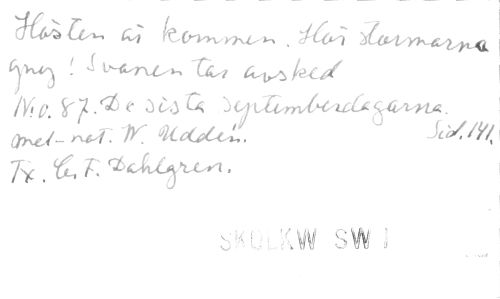 Hösten är kommen. Hör stormarna
gny! Svanen tar avsked
N:o. 87. De sista septemberdagarna.
mel-not. W. Uddén. Sid. 141.
Tx. C. F. Dahlgren.
SKOLKW SW I